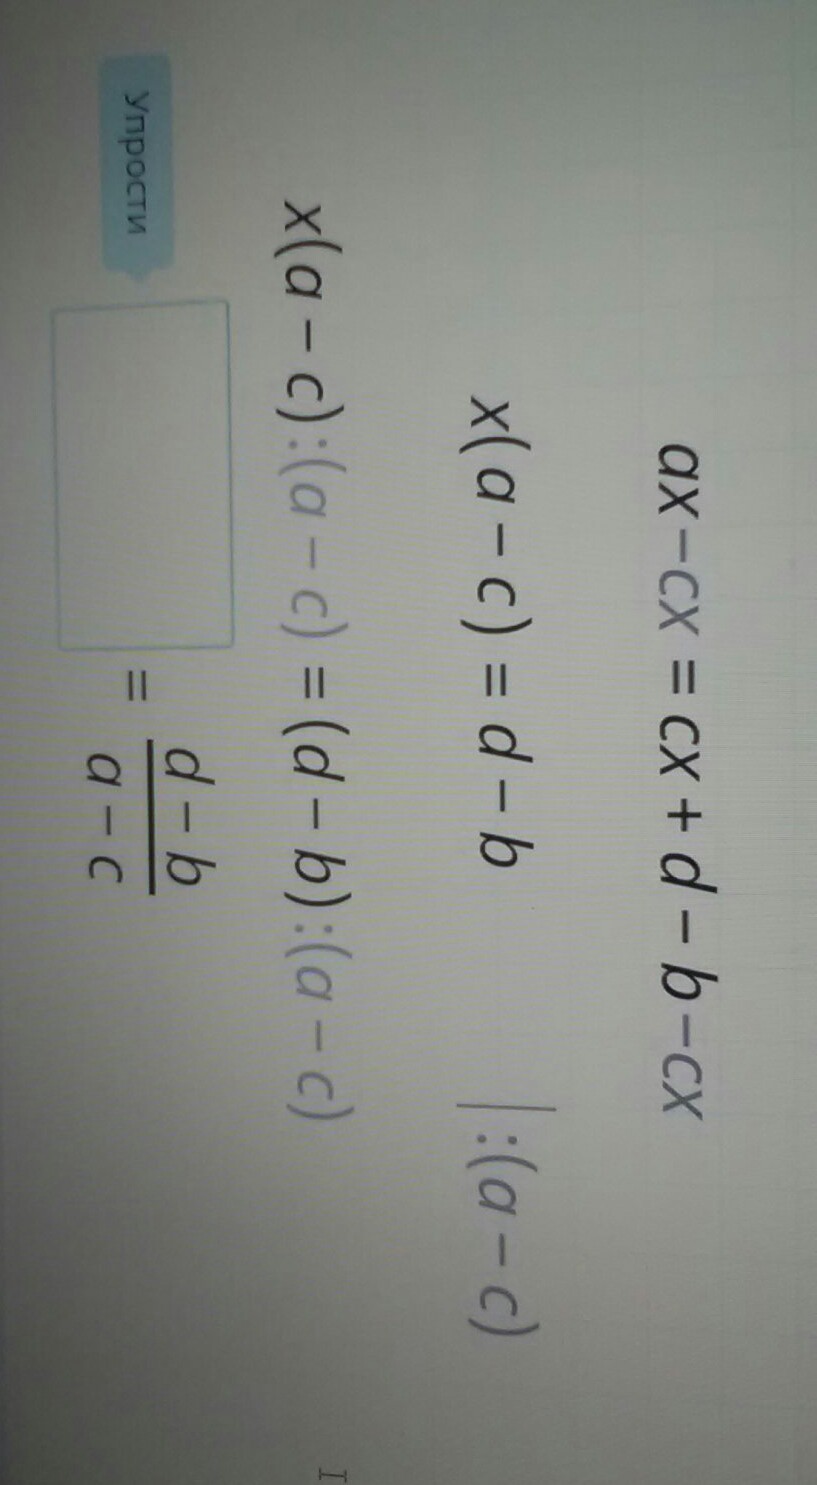 ax−cx = cx + d − b−cx
x(a − c) = d − b | :(a − c)
x(a − c):(a − c) = (d − b):(a − c)
Упрости = \frac{d − b}{a − c}